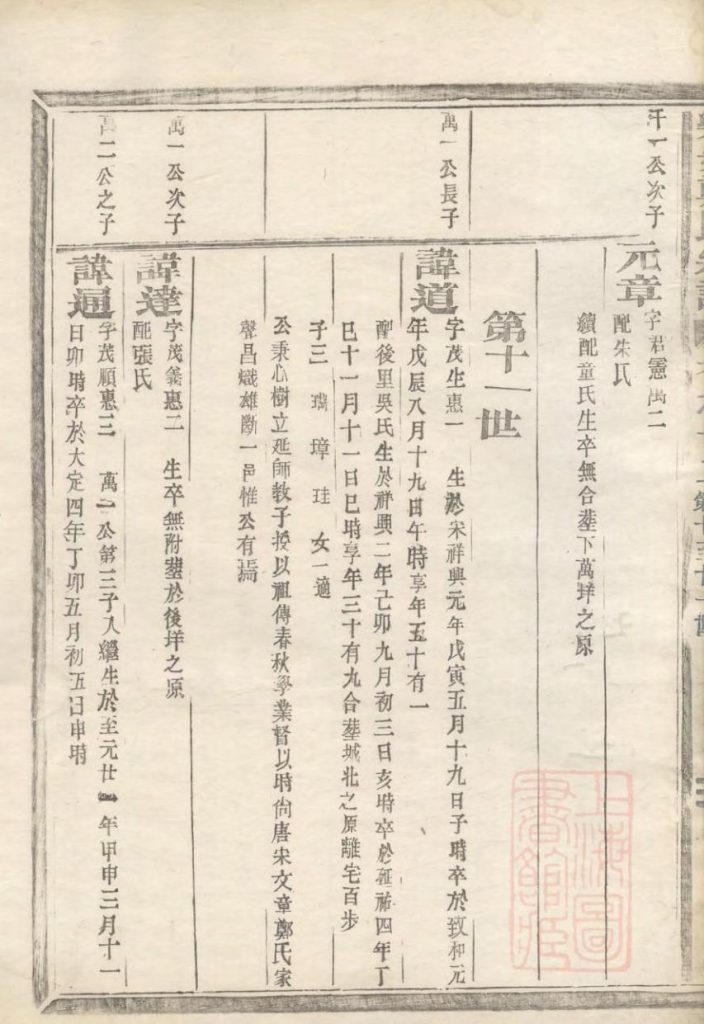 千一公次子
元章
字君憲萬二
配朱氏
續配童氏生卒無合塟下萬垟之原
第十一世
萬一公長子
諱道
字茂生惠一 生於宋祥興元年戊寅五月十九日子時卒於致和元
年戊辰八月十九日午時享年五十有一
配後里吳氏生於祥興二年己卯九月初三日亥時卒於延祐四年丁
巳十一月十一日巳時享年三十有九合塟城北之原離宅百步
子三 璞 璋 珪 女一適
公秉心樹立延師教子授以祖傳春秋學業督以時尙唐宋文章鄭氏家
聲昌熾雄斷一邑惟公有焉
萬一公次子
諱達
字茂義惠二 生卒無附塟於後垟之原
配張氏
萬二公之子
諱通
字茂順惠三 萬一公第三子入繼生於至元廿一年甲申三月十一
日卯時卒於大定四年丁卯五月初五日申時
上海圖書館藏